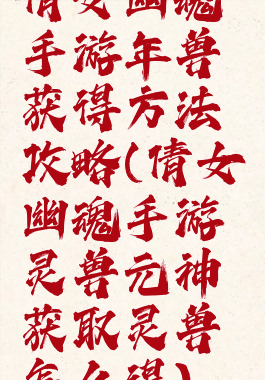 倩女幽魂
手游年兽
获得方法
攻略(倩女
幽魂手游
灵兽元神
获取灵兽
怎么得)